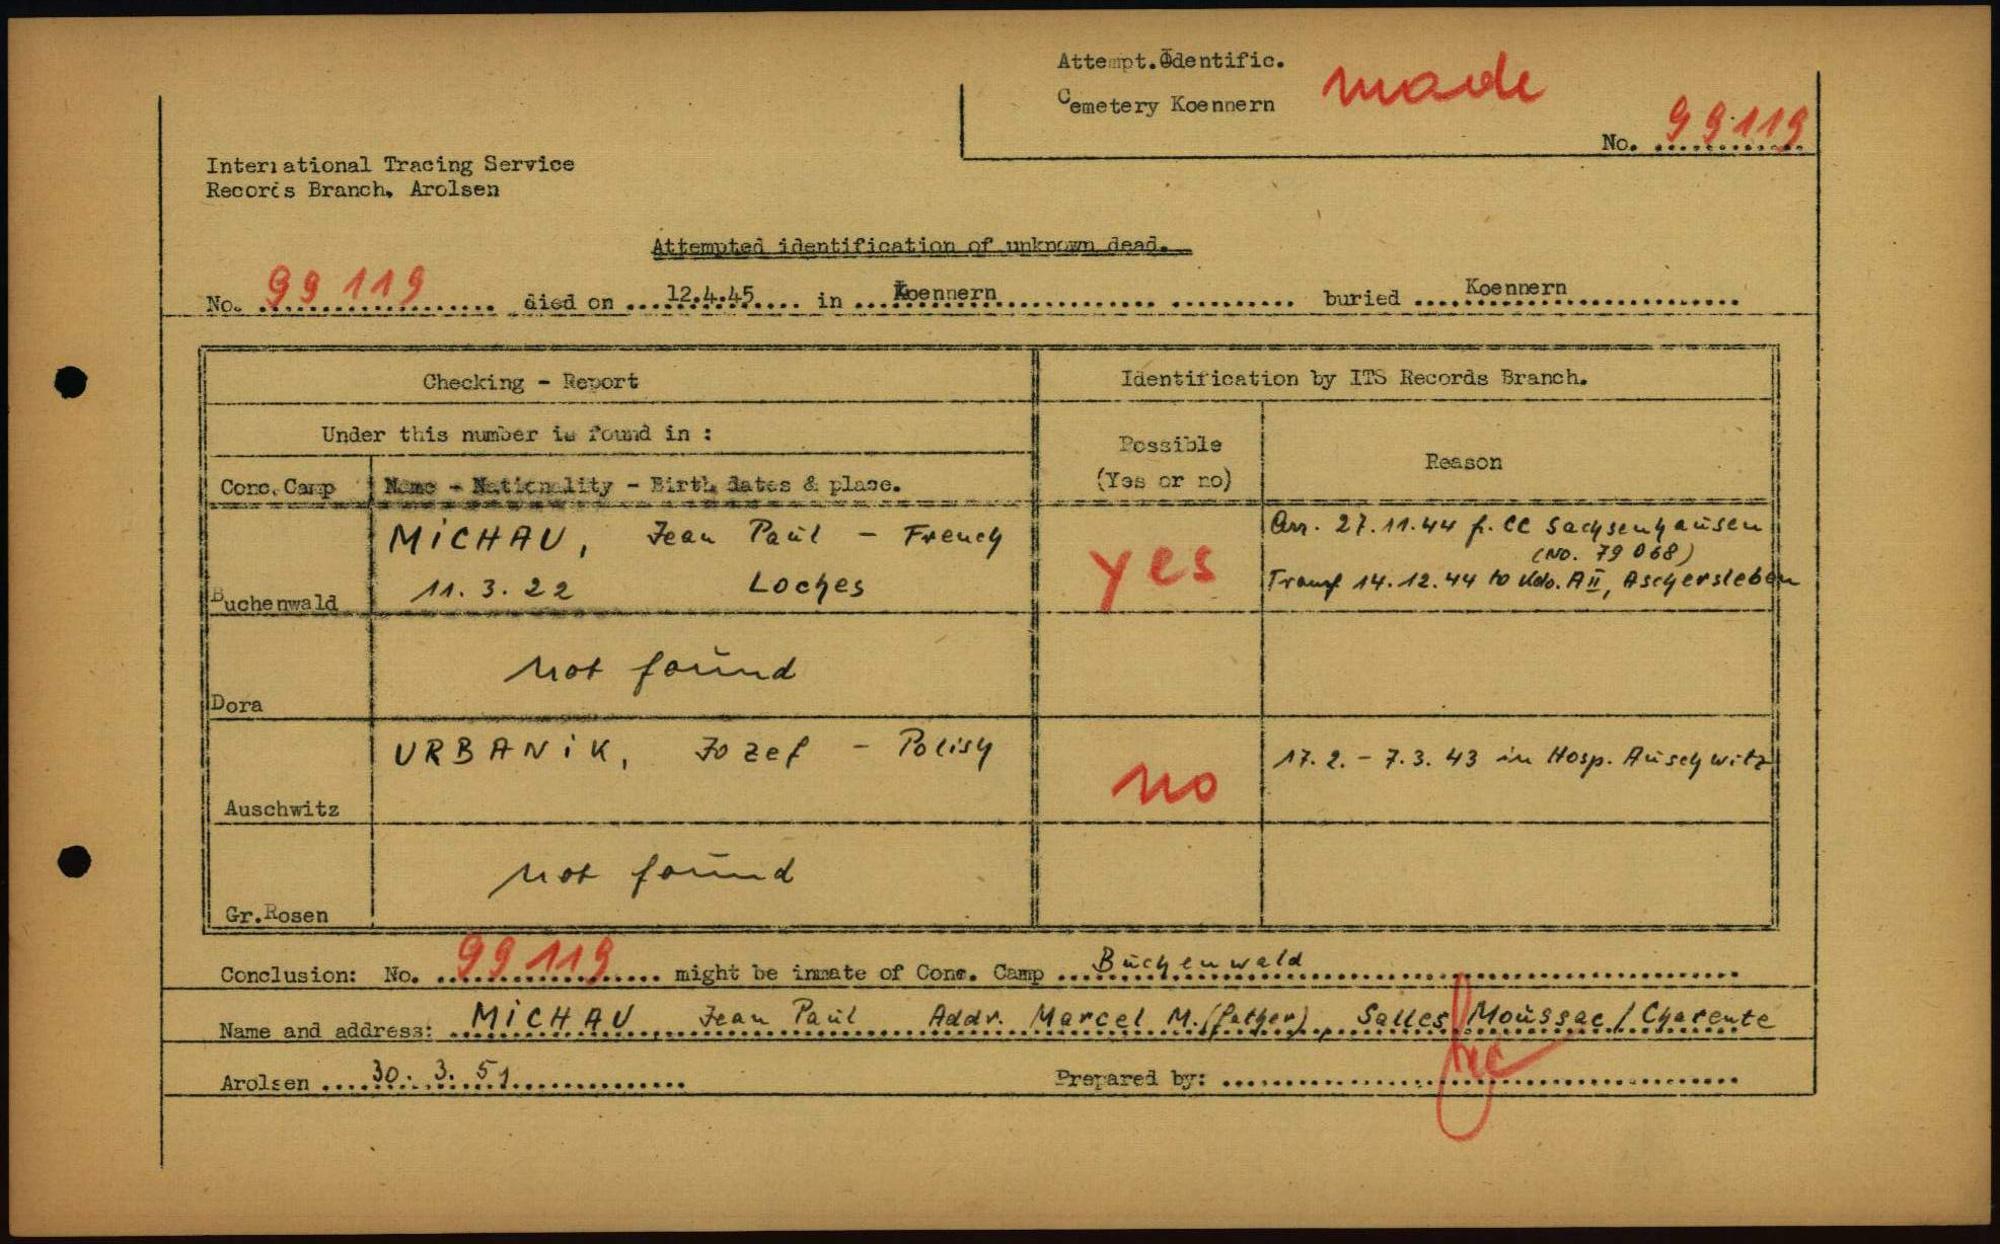 Attempt.Identific.
Cemetery Koennern
made
No. 99119
International Tracing Service
Records Branch, Arolsen
Attempted identification of unknown dead.
No. 99119 died on 12.4.45 in Koennern buried Koennern
Checking - Report
Identification by ITS Records Branch.
Under this number is found in :
Possible
(Yes or no)
Reason
Conc. Camp
Name - Nationality - Birth dates & place.
Buchenwald
MICHAU, Jean Paul - French
11.3.22 Loches
yes
Arr. 27.11.44 f. CC Sachsenhausen
(No. 79068)
Transf 14.12.44 to Kdo. AII, Aschersleben
Dora
not found
Auschwitz
URBANIK, Jozef - Polish
no
17.2. - 7.3.43 in Hosp. Auschwitz
Gr.Rosen
not found
Conclusion: No. 99119 might be inmate of Conc. Camp Buchenwald
Name and address: MICHAU Jean Paul Addr. Marcel M. (father), Salles Moussac / Charente
Arolsen 30.3.51
Prepared by: